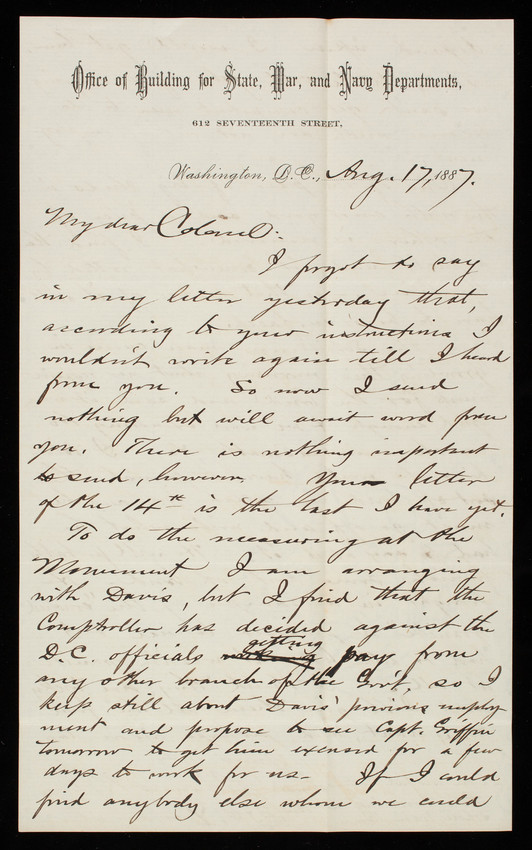 Office of Building for State, War, and Navy Departments,
612 SEVENTEENTH STREET,
Washington, D.C., Aug. 17, 1887.
My dear Colonel:
I forgot to say
in my letter yesterday that,
according to your instructions I
wouldn't write again till I heard
from you. So now I send
nothing but will await word from
you. There is nothing important
to send, however. Your letter
of the 14th is the last I have yet.
To do the measuring at the
Monument I am arranging
with Davis, but I find that the
Comptroller has decided against the
D.C. officials getting pay from
any other branch of the Gov't, so I
keep still about Davis' previous employ-
ment and propose to see Capt. Griffin
tomorrow to get him excused for a few
days to work for us. If I could
find anybody else whom we could